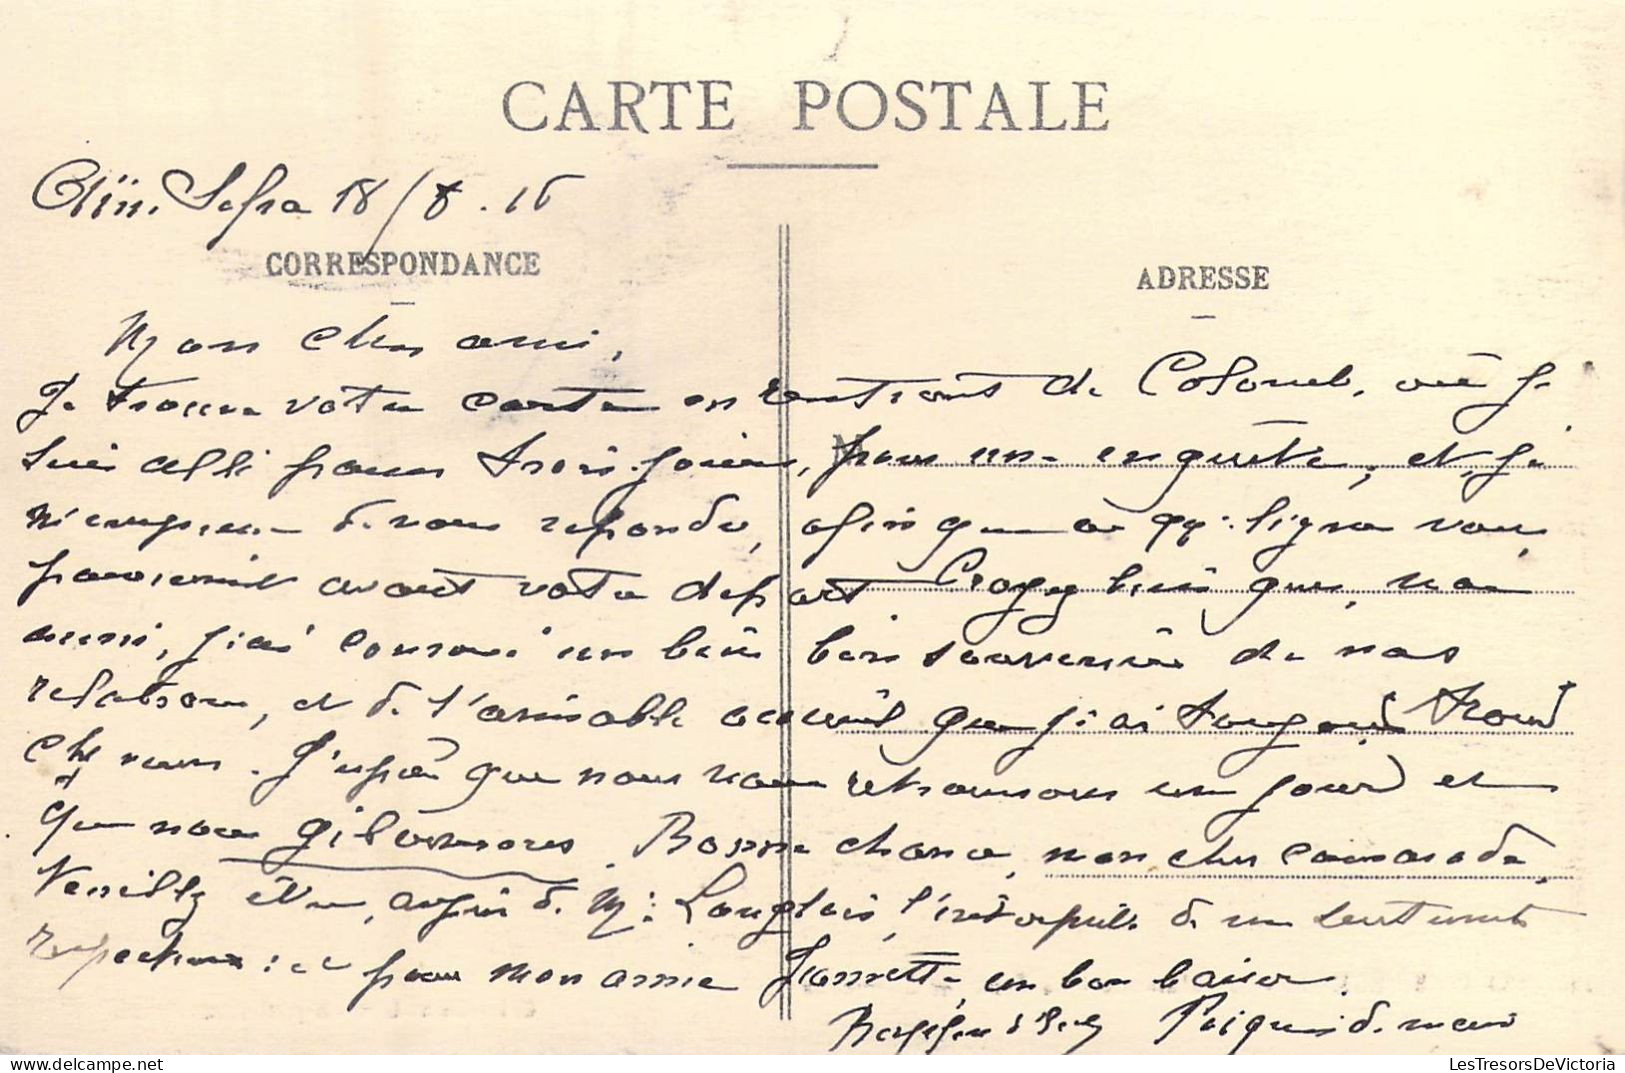 CARTE POSTALE
Aïn. Sefra 18/8.16
CORRESPONDANCE
ADRESSE
Mon cher ami,
Je trouve votre carte en rentrant de Colomb, où je
suis allé pour trois jours, pour une enquête, et je
m'empresse de vous répondre, afin que ce qq: lignes vous
parviennent avant votre départ. Croyez bien que, moi
aussi, j'ai conservé un bien bon souvenir de nos
relations, et de l'aimable accueil que j'ai toujours trouvé
chez vous. J'espère que nous nous retrouverons un jour et
que nous gibernerons. Bonne chance, mon cher camarade,
Veuillez être, auprès de M: Langlois, l'interprète de mes sentiments
respectueux: et pour mon amie Jeannette, un bon baiser.
LesTresorsDeVictoria